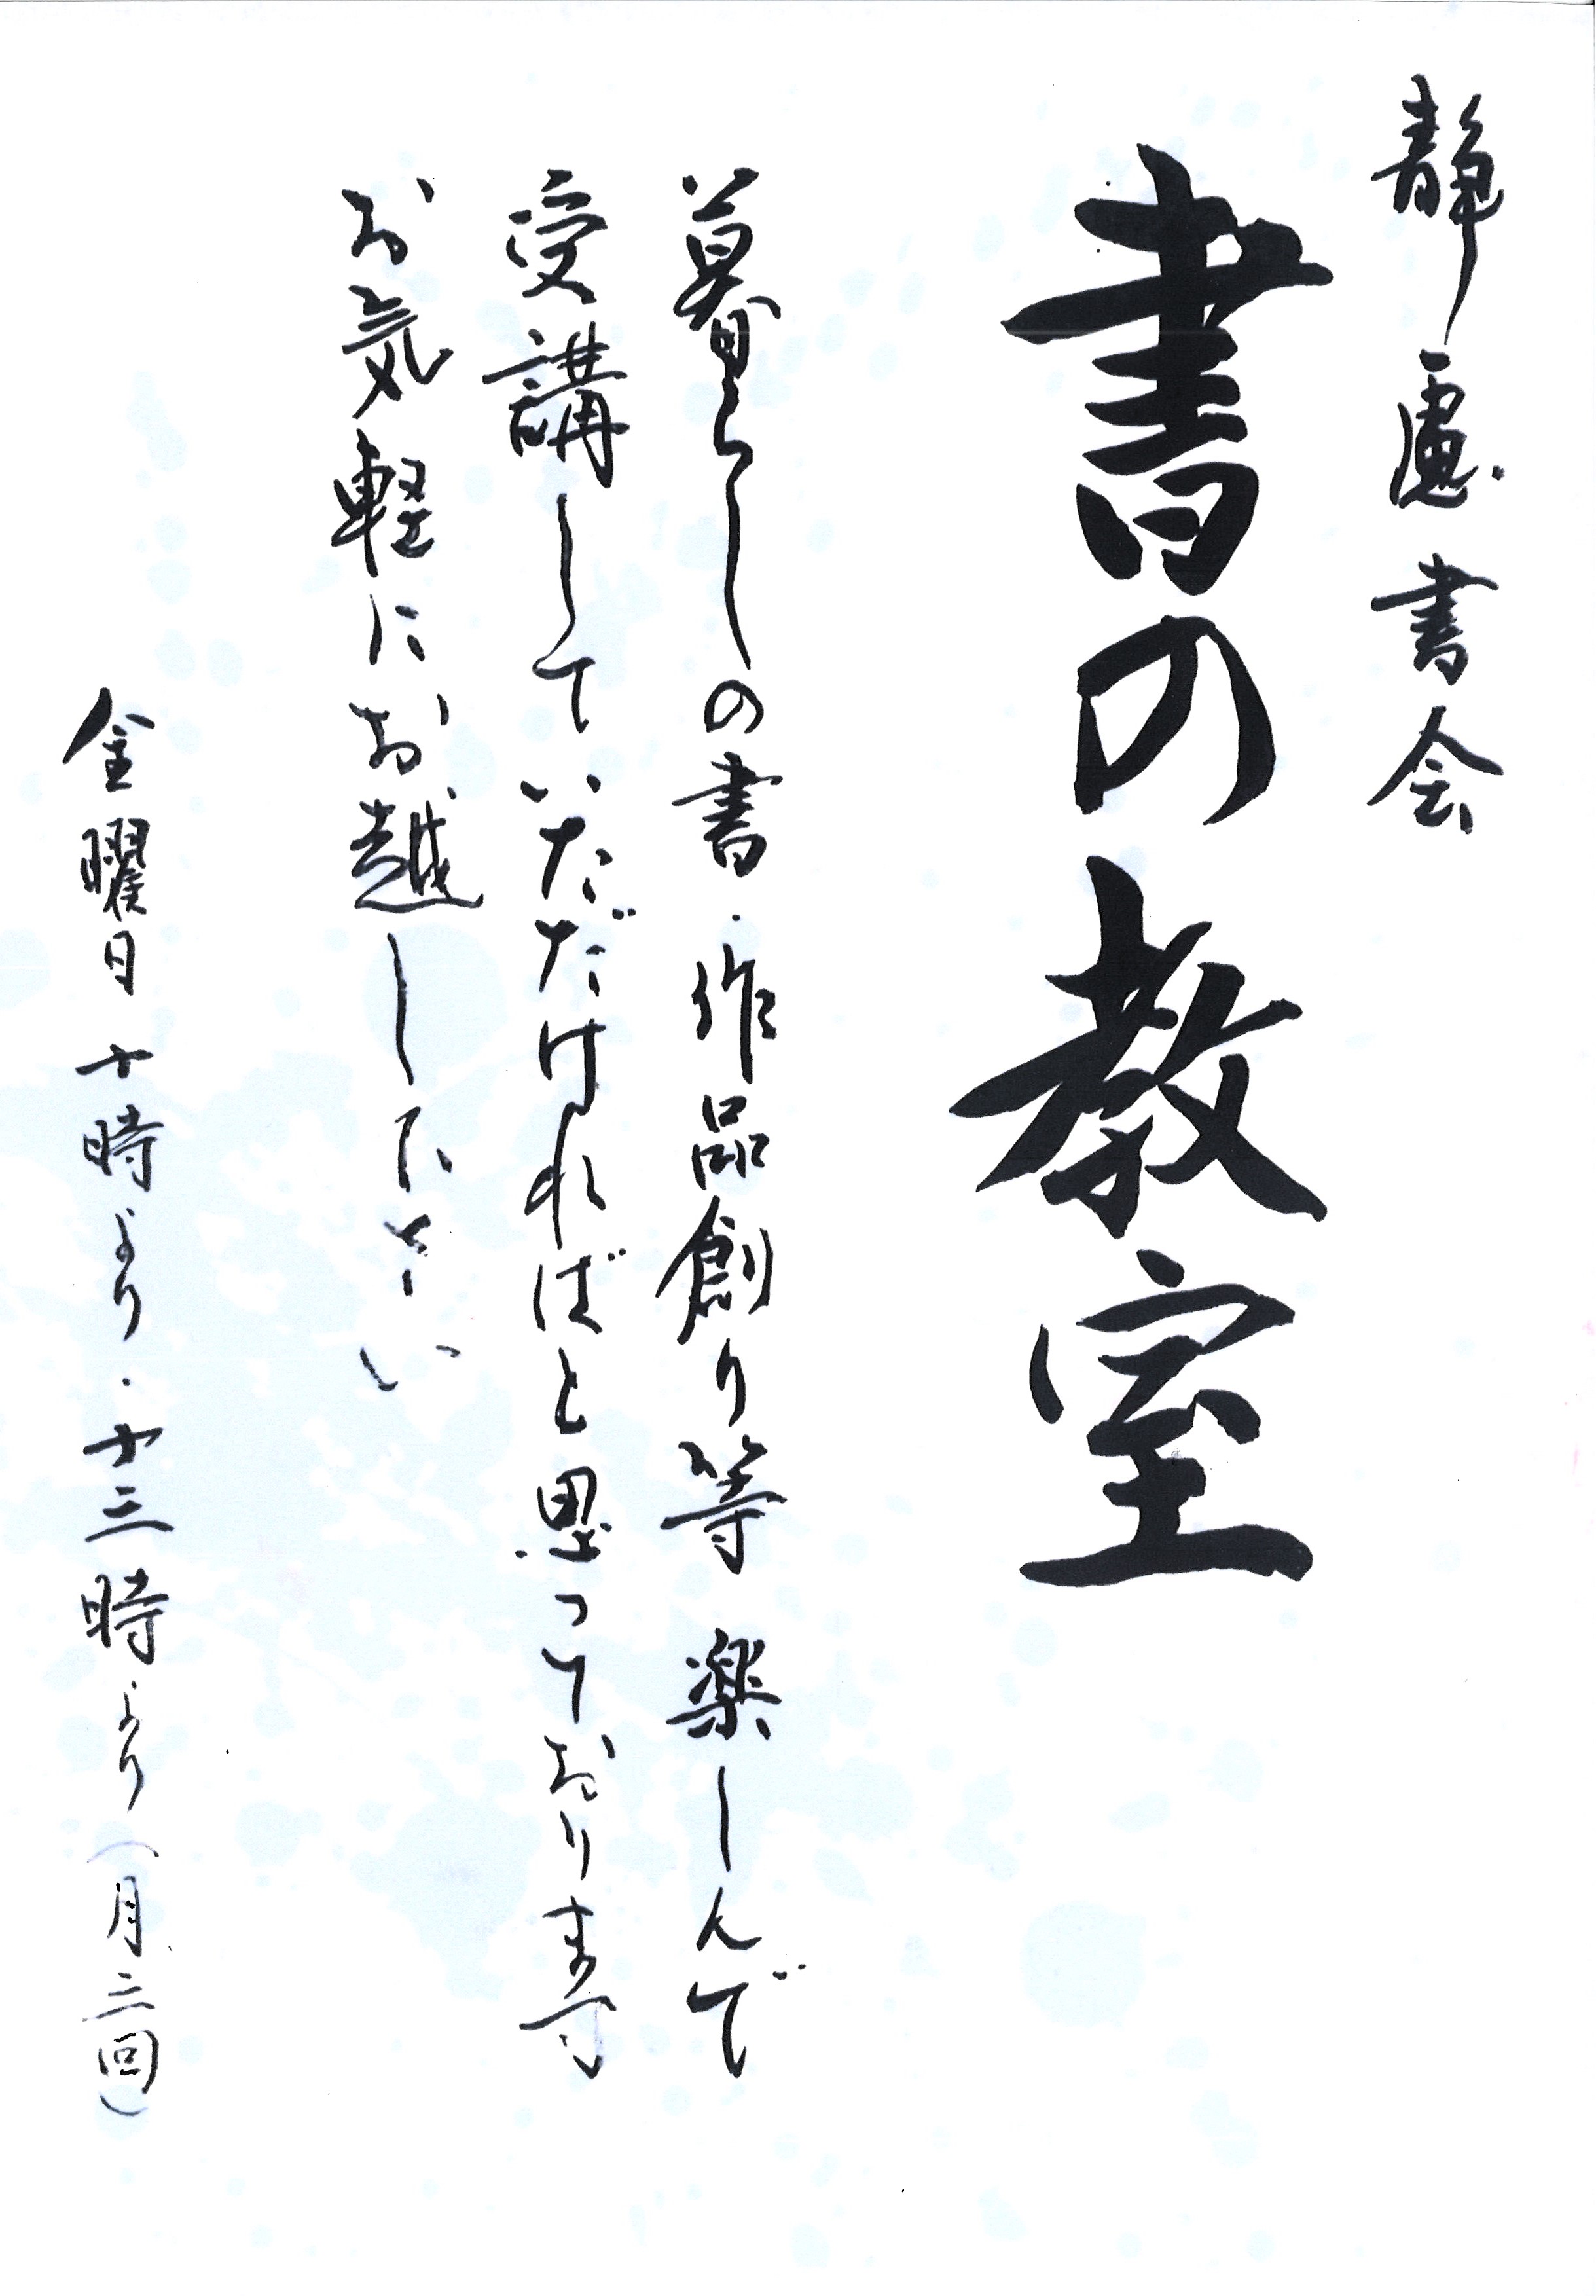 静慮書会
書の教室
暮らしの書・作品創り等 楽しんで
受講していただければと思っております
お気軽にお越し下さい
金曜日 十時より・十三時より(月三回)